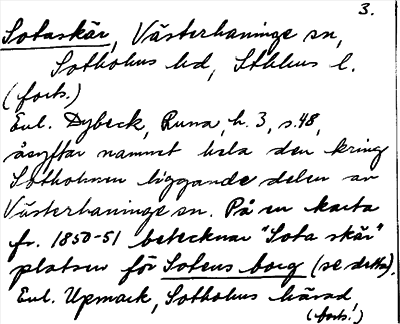 3.
Sotaskär, Västerhaninge sn,
Sotholms hd, Sthlms l.
(forts.)
Enl. Dybeck, Runa, h. 3, s. 48,
åsyftar namnet hela den kring
Sotholmen liggande delen av
Västerhaninge sn. På en karta
fr. 1850-51 betecknar "Sota skär"
platsen för Sotens borg (se detta).
Enl. Upmark, Sotholms härad,
(forts.)